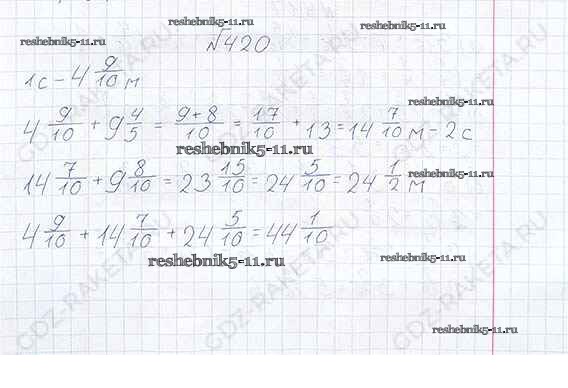 reshebnik5-11.ru
reshebnik5-11.ru
reshebnik5-11.ru
№420
1с - 4 9/10 м
reshebnik5-11.ru
4 9/10 + 9 4/5 = (9+8)/10 = 17/10 + 13 = 14 7/10 м - 2с
reshebnik5-11.ru
14 7/10 + 9 8/10 = 23 15/10 = 24 5/10 = 24 1/2 м
reshebnik5-11.ru
4 9/10 + 14 7/10 + 24 5/10 = 44 1/10
reshebnik5-11.ru
reshebnik5-11.ru
reshebnik5-11.ru
GDZ-RAKETA.RU
GDZ-RAKETA.RU
GDZ-RAKETA.RU
GDZ-RAKETA.RU